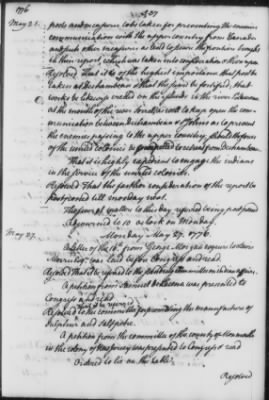 1776
237
May 25.
posts and measures to be taken for preventing the enemies
communication with the upper country from Canada
and such other measures as tend to secure the frontiers bought
in their report, which was taken into consideration Whereupon
Resolved That it is of the highest importance that post be
taken at Deschambeau & that the same be fortified, that
works be likewise erected on the island in the river
at the mouth of the river Sorel, and upon the com-
munication between Deschambeau & St Johns as to prevent
the enemies passing to the upper country, should the forces
of the united colonies be to retreat from Deschambeau.
That it is highly expedient to engage the indians
in the service of the united colonies.
Resolved That the farther consideration of the report be
postponed till monday next.
The several matters to this day referred being postponed
Adjourned to 10 o clock on Monday.
May 27.
Monday May 27. 1776.
A letter of the 16th from George Morgan esqr
was laid before Congress and read.
Resolved That it be referred to the standing committee on indian affairs.
A petition from Samuel was presented to
Congress and read
Resolved That it be referred to the committee for providing the manufacture of
sulphur and saltpetre.
A petition from the committee of the county of Monmouth
in the colony of New Jersey was presented to Congress & read
Ordered to lie on the table.
Resolved